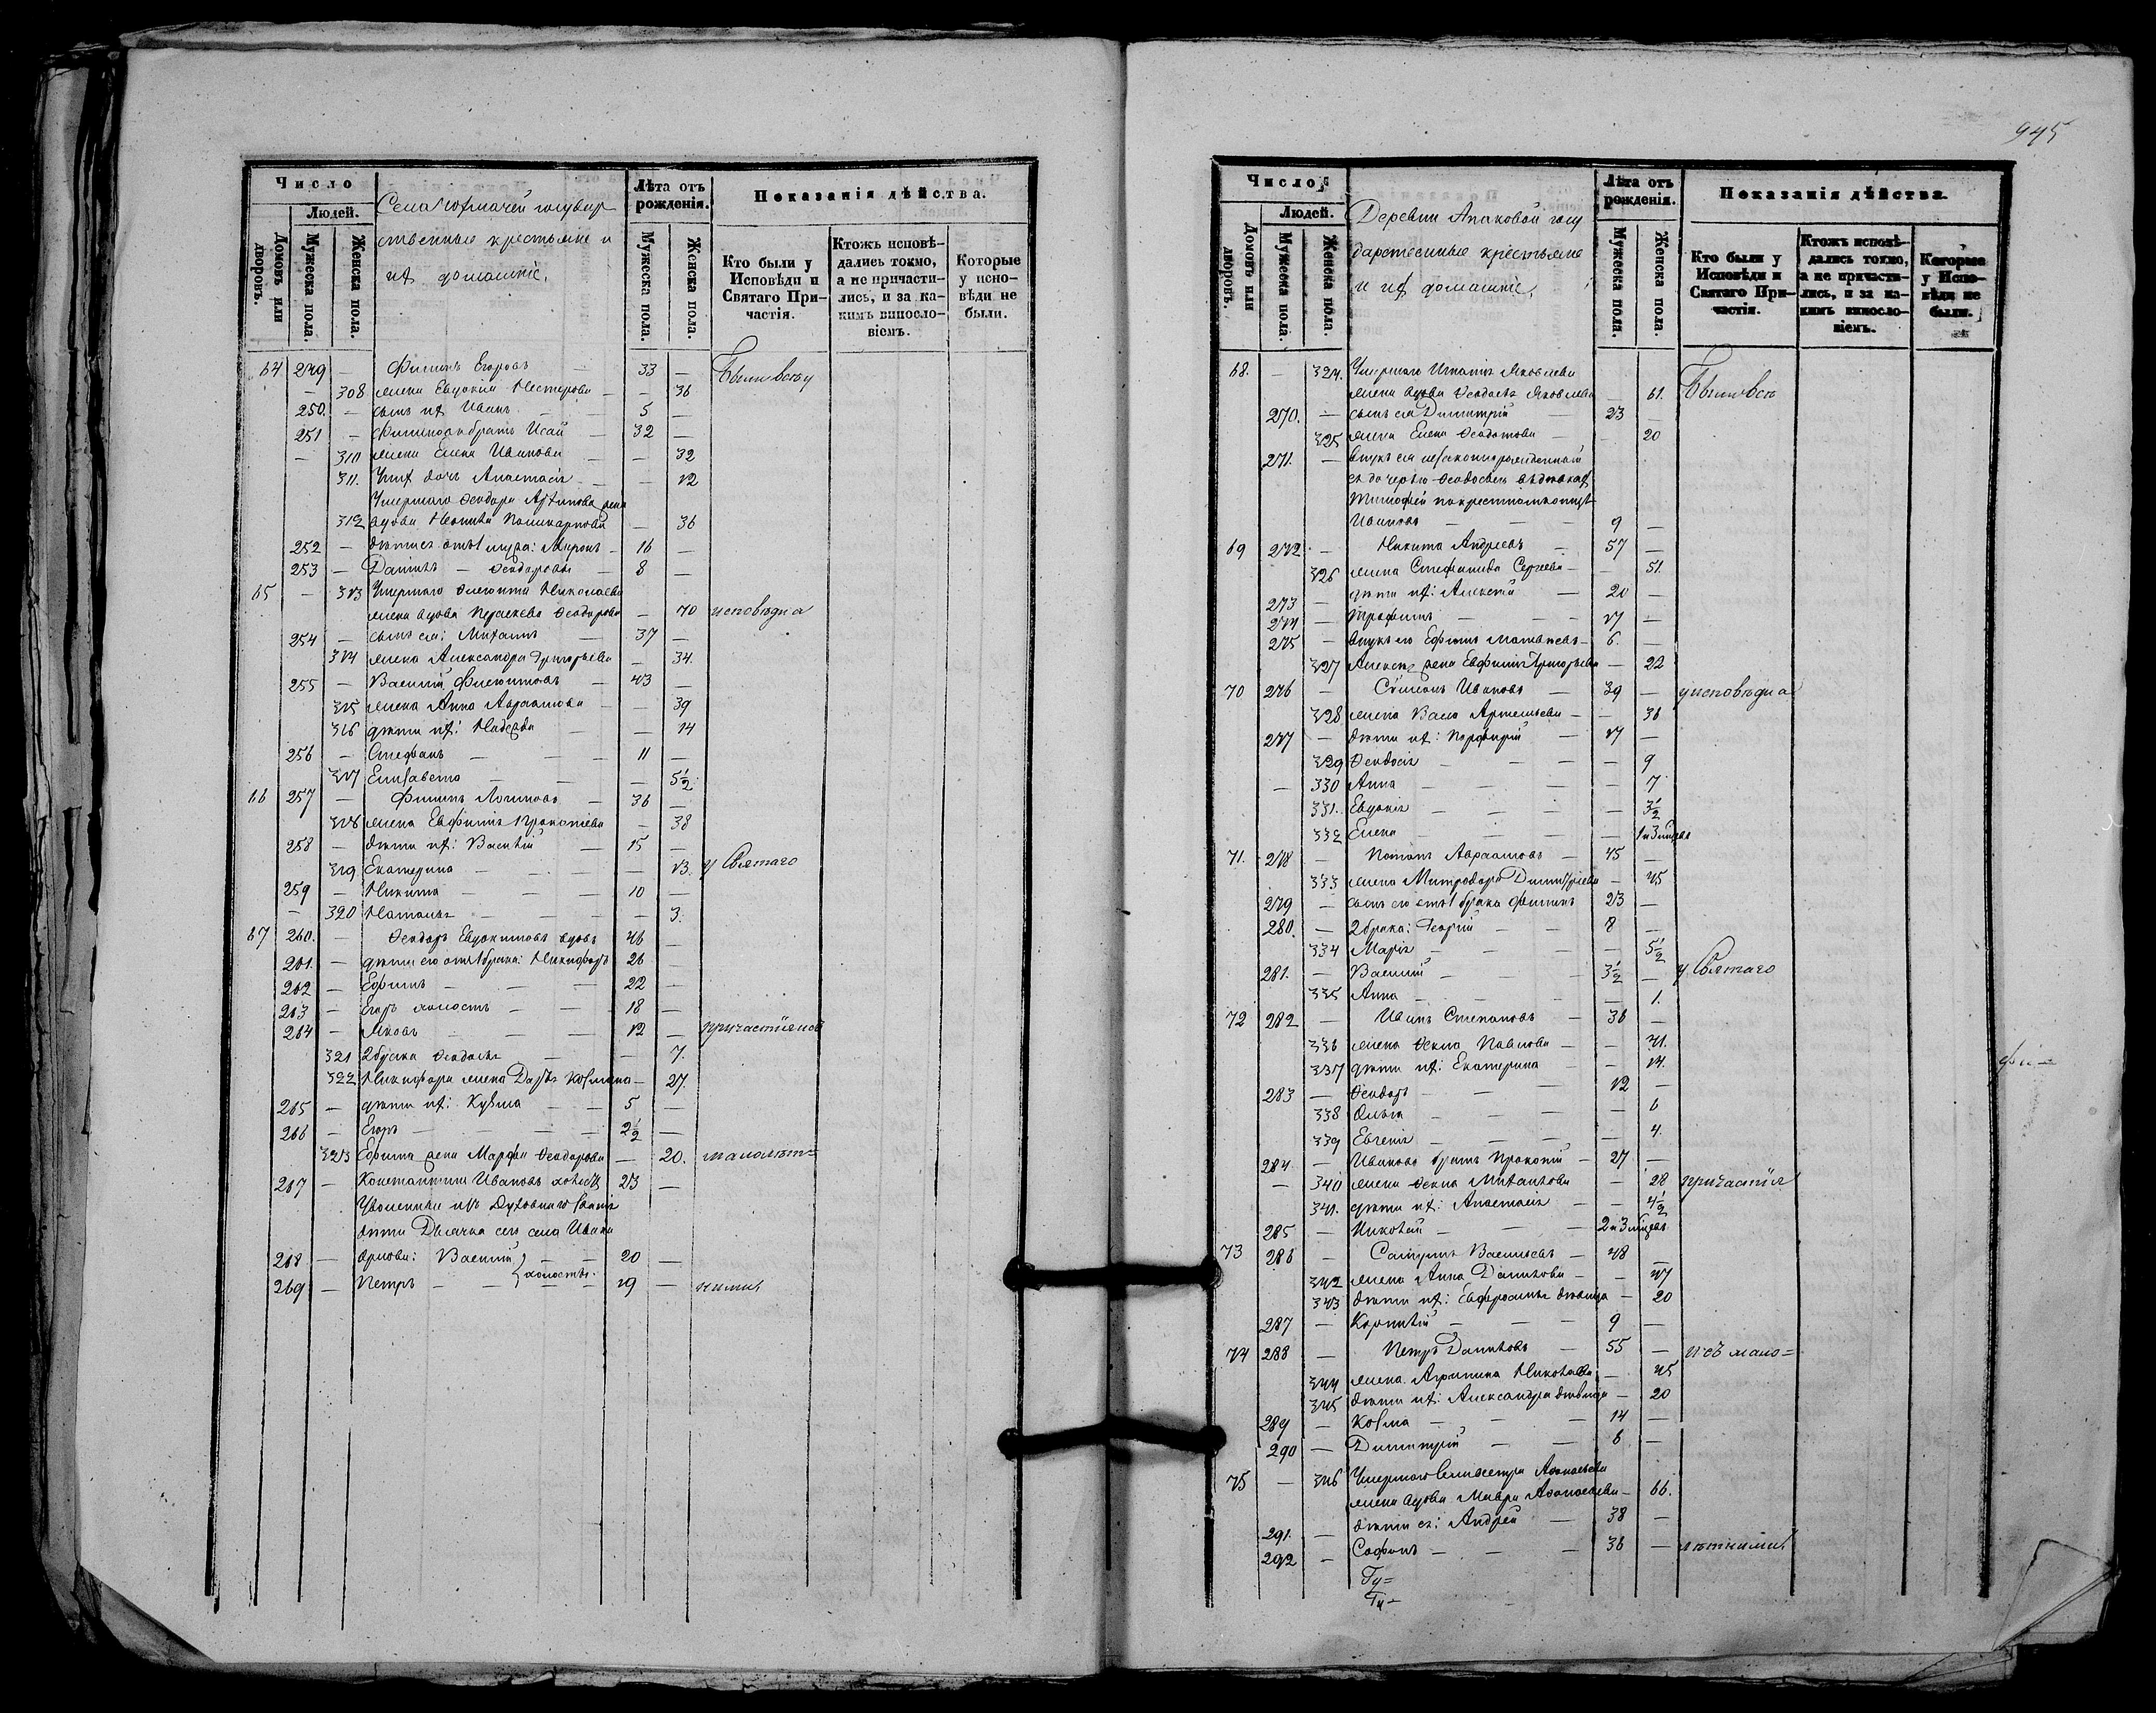 Число
Людей.
Домовъ или дворовъ.
Мужеска пола.
Женска пола.
Села государ
ственные крестьяне и
ихъ домашніе.
Лѣта отъ рожденія.
Мужеска пола.
Женска пола.
Показанія дѣйства.
Кто были у Исповѣди и Святаго Причастія.
Ктожъ исповѣдались токмо, а не причастились, и за какимъ винословіемъ.
Которые у исповѣди не были.
64 249 — Филипъ Егоровъ 33 —
— 308 жена Евдокія Нестерова — 36
250. — сынъ ихъ Иванъ 5 —
251 — Филиповъ братъ Исай 32 —
— 310 жена Елена Иванова — 32
311. Ихъ дочь Анастасія — 12
Умершаго Ѳеодора жена
312 вдова Поликарпова — 36
252 — дѣти отъ 1 мужа: Миронъ 16 —
253 — Данилъ — Ѳеодоровы 8 —
65 — 313 Умершаго Николаева
жена вдова Параскева Ѳеодорова — 70 исповѣди и
254 — сынъ ея: Михаилъ 37 —
314 жена Александра Григорьева — 34.
255 — Василій 43 —
315 жена Анна Авраамова — 39
316 дѣти ихъ: Надежда — 14
256 — Стефанъ 11 —
317 Елисавета — 5½
66 257 — Филипъ Логиновъ 36 —
318 жена Евфимія Прокопіева — 38
258 — дѣти ихъ: Василій 15 —
319 Екатерина — 13. у Святаго
259 — Никита 10 —
— 320 Наталья — 3.
67 260. — Ѳеодоръ Евдокимовъ вдовъ 46 —
261. — дѣти его отъ 1 брака: Никифоръ 26
262 — Ефимъ 22 —
263 — Егоръ холостъ 18 —
264 — Яковъ 12 — причастія
321 2 брака Ѳеодосья — 7.
322 Никифора жена Дарья Козмина — 27.
265 — дѣти ихъ: Кузма 5 —
266 — Егоръ 2½ —
323 Ефима жена Марфа Ѳеодорова — 20. малолѣт=
267 — Константинъ Ивановъ холостъ 23 —
Уволенные изъ Духовнаго званія
дѣти Дьячка сего села Ивана
268 — Василій 20 —
холосты.
269 — Петръ 19 — ними
945
Число
Людей.
Домовъ или дворовъ.
Мужеска пола.
Женска пола.
Деревни Апаковой госу
дарственные крестьяне
и ихъ домашніе.
Лѣта отъ рожденія.
Мужеска пола.
Женска пола.
Показанія дѣйства.
Кто были у Исповѣди и Святаго Причастія.
Ктожъ исповѣдались токмо, а не причастились, и за какимъ винословіемъ.
Которые у Исповѣди не были.
68. — 324. Умершаго Яковлева
жена вдова Ѳеодосья Яковлева — 61.
270. — сынъ ея Димитрій 23 —
325 жена Елена Ѳеодотова — 20
271. — внукъ ея незаконнорожденный
Тимоѳей
Ивановъ 9 —
69 272 — Никита Андреевъ 57 —
326 жена Степанида Сергеева — 51.
273 — дѣти ихъ: Алексѣй 20 —
274 — Трофимъ 17 —
275 — внукъ его Ефимъ Матвѣевъ 6. —
327 Алексѣя жена Евфимія Григорьева — 22
70 276 — Симеонъ Ивановъ 39 — у исповѣди и
328 жена Васса Артемьева — 36
277 — дѣти ихъ: Порфирій 17 —
329 Ѳеодосія — 9
— 330 Анна — 7
331. Евдокія — 3½
332 Елена — 1 и 3 мѣсяца
71. 278 — Потапъ Авраамовъ 45 —
333 жена Митродора Димитріева — 45
279 — сынъ его отъ 1 брака Филипъ 23 —
280. — 2 брака: Георгій 8 —
334 Марія — 5½
281. — Василій 3½ — у Святаго
335 Анна — 1.
72 282 — Иванъ Степановъ 36 —
336 жена Ѳекла Павлова — 41.
337 дѣти ихъ: Екатерина — 14.
283 — Ѳеодоръ 12 —
338 Ольга — 6
339 Евгенія — 4.
284. — Ивановъ братъ Прокопій 27 —
— 340 жена Ѳекла Михайлова — 28 причастія
341. дѣти ихъ: Анастасія — 4½
285 — Николай 2 и 3 мѣсяц.
73 286 — Василіевъ 48 —
342 жена Анна Данилова — 47
343 дѣти ихъ: Евфросинья дѣвица — 20
287 — Корнилій 9 —
74 288 — Петръ Даниловъ 55 — и съ мало=
344 жена Агрипина Николаева — 45
345 дѣти ихъ: Александра дѣвица — 20
289 — Козма 14 —
290 — Димитрій 6 —
75 — 346 Умершаго Селивестра Аѳанасьева
жена вдова Мавра Аѳанасьева — 66.
291. — дѣти ея: Андрей 38 —
292 — Софонъ 36 — лѣтними